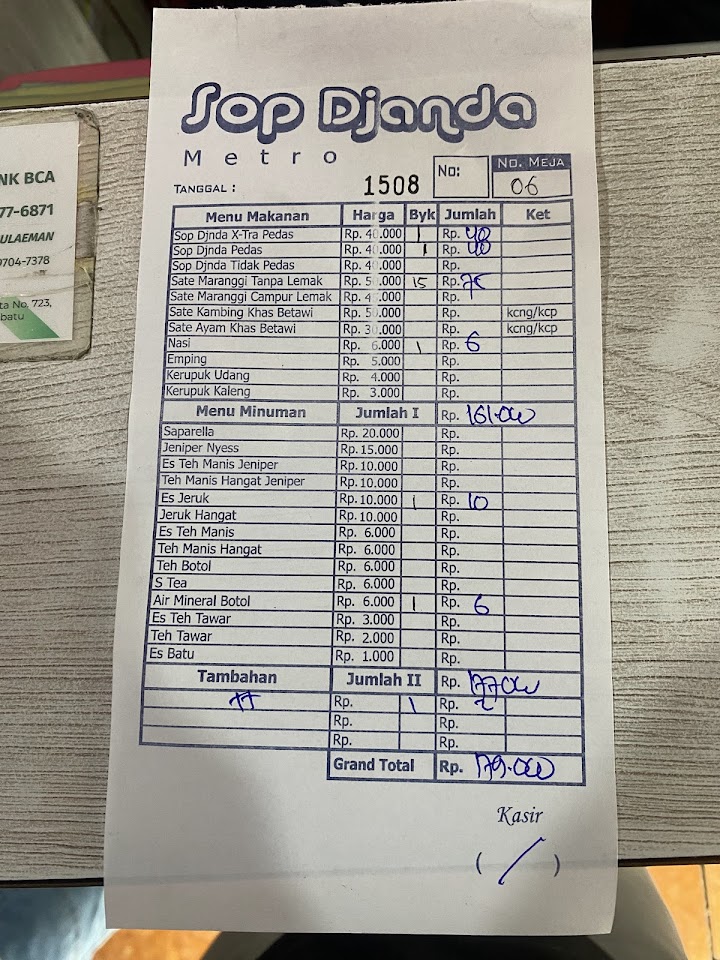 NK BCA
77-6871
ULAEMAN
9704-7378
ta No, 723,
batu
Sop Djanda
Metro
TANGGAL : 1508 No: No. MEJA 06
Menu Makanan Harga Byk Jumlah Ket
Sop Djnda X-Tra Pedas Rp. 40.000 1 Rp. 40
Sop Djnda Pedas Rp. 40.000 1 Rp. 40
Sop Djnda Tidak Pedas Rp. 40.000 Rp.
Sate Maranggi Tanpa Lemak Rp. 50.000 15 Rp. 75
Sate Maranggi Campur Lemak Rp. 45.000 Rp.
Sate Kambing Khas Betawi Rp. 50.000 Rp. kcng/kcp
Sate Ayam Khas Betawi Rp. 30.000 Rp. kcng/kcp
Nasi Rp. 6.000 1 Rp. 6
Emping Rp. 5.000 Rp.
Kerupuk Udang Rp. 4.000 Rp.
Kerupuk Kaleng Rp. 3.000 Rp.
Menu Minuman Jumlah I Rp. 161.000
Saparella Rp. 20.000 Rp.
Jeniper Nyess Rp. 15.000 Rp.
Es Teh Manis Jeniper Rp. 10.000 Rp.
Teh Manis Hangat Jeniper Rp. 10.000 Rp.
Es Jeruk Rp. 10.000 1 Rp. 10
Jeruk Hangat Rp. 10.000 Rp.
Es Teh Manis Rp. 6.000 Rp.
Teh Manis Hangat Rp. 6.000 Rp.
Teh Botol Rp. 6.000 Rp.
S Tea Rp. 6.000 Rp.
Air Mineral Botol Rp. 6.000 1 Rp. 6
Es Teh Tawar Rp. 3.000 Rp.
Teh Tawar Rp. 2.000 Rp.
Es Batu Rp. 1.000 Rp.
Tambahan Jumlah II Rp. 177.000
TT Rp. 1 Rp. 2
Rp. Rp.
Rp. Rp.
Grand Total Rp. 179.000
Kasir
( / )